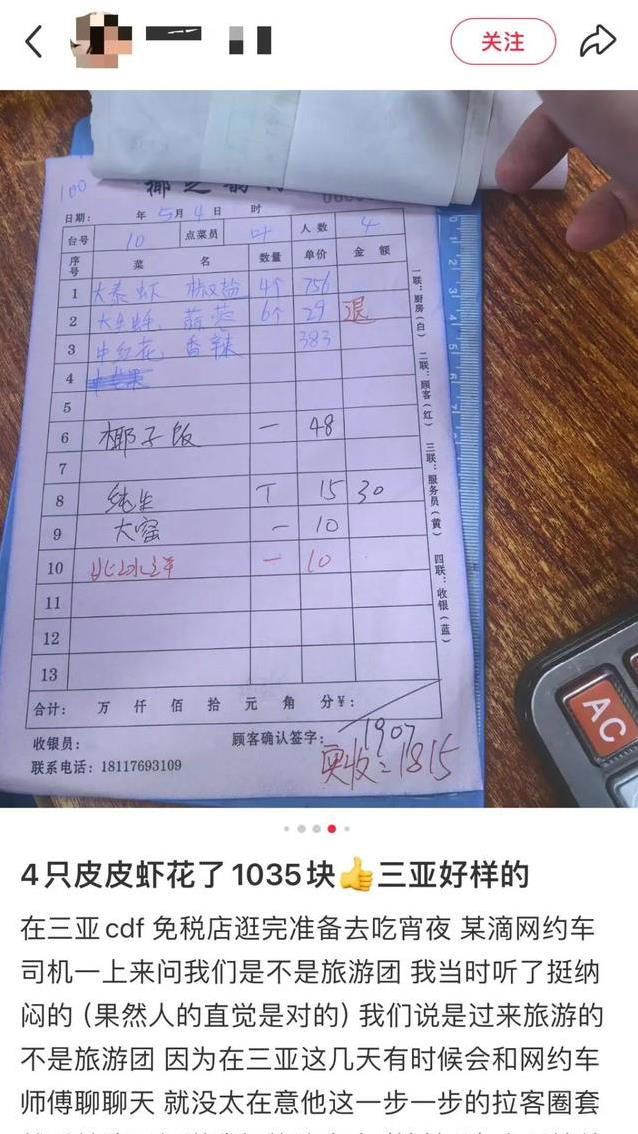 关注
100
椰之韵
日期: 年 5月 4日 时
台号 10 点菜员 叶 人数 4
序号 菜 名 数量 单价 金 额
1 大泰虾 椒盐 4个 756
2 大生蚝 蒜蓉 6个 29 退
3 中红花 香辣 383
4
5
6 椰子饭 一 48
7
8 纯生 T 15 30
9 大窑 一 10
10 一 10
11
12
13
合计: 万 仟 佰 拾 元 角 分¥:
1907
收银员: 顾客确认签字:
实收=1815
联系电话: 18117693109
一联:厨房(白) 二联:顾客(红) 三联:服务员(黄) 四联:收银(蓝)
AC
4只皮皮虾花了1035块👍三亚好样的
在三亚cdf 免税店逛完准备去吃宵夜 某滴网约车
司机一上来问我们是不是旅游团 我当时听了挺纳
闷的（果然人的直觉是对的）我们说是过来旅游的
不是旅游团 因为在三亚这几天有时候会和网约车
师傅聊聊天 就没太在意他这一步一步的拉客圈套